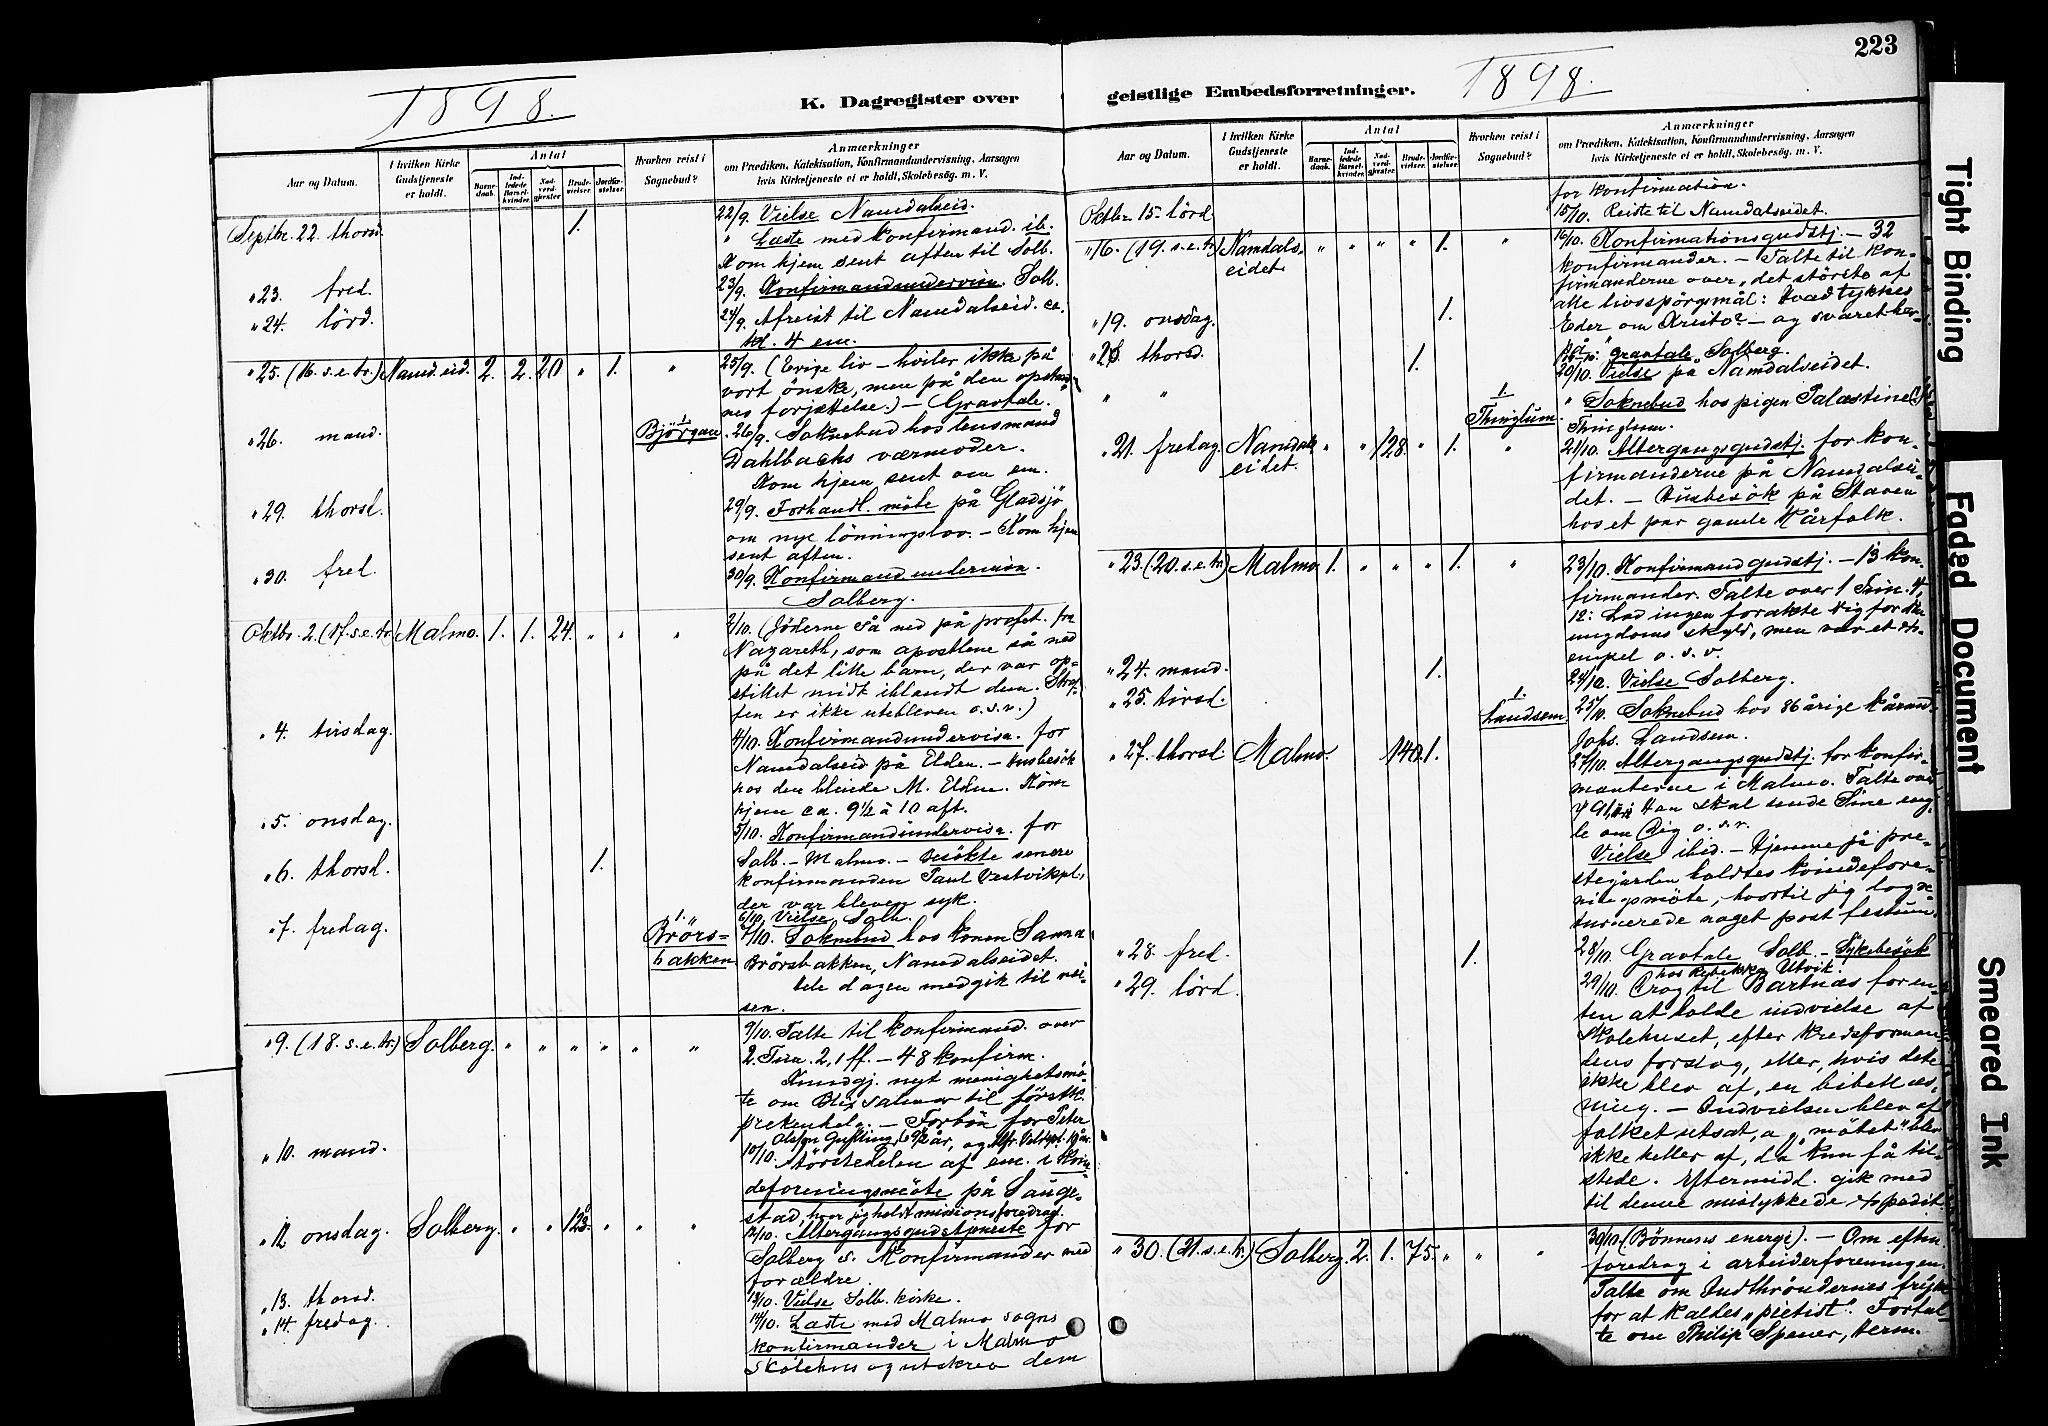 223
1898.
K. Dagregister over
geistlige Embedsforretninger.
1898.
Aar og Datum.
I hvilken Kirke Gudstjeneste er holdt.
Antal
Barne-daab.
Ind-ledede Barsel-kvinder.
Nad-verd-gjester.
Brude-vielser.
Jordfæ-stelser.
Hvorhen reist i Sognebud?
Anmærkninger
om Prædiken, Katekisation, Konfirmandundervisning, Aarsagen
hvis Kirketjeneste ei er holdt, Skolebesøg. m. V.
Septbr. 22. thorsd. 1. 22/9. Vielse Namdalseid.
" Læste med konfirmand. ib.
Kom hjem sent aften til Solb.
"23. fred. 23/9. Konfirmandundervisn. Solb.
"24. lörd. 24/9. Afreist til Namdalseid. ca.
kl. 4 em.
"25. (16. s.e.tr.) Namd.eid. 2. 2. 20 " 1. " 25/9. (Evige liv – hviler ikke på
vort önske, men på den opstand-
nes forjættelse.) – Gravtale.
"26. mand. 1. Björgan 26/9. Soknebud hos lensmand
Dahlbacks værmoder.
Kom hjem sent om em.
"29. thorsd. 29/9. Forhandl. möte på Gladsjö
om nye lönningslov. – Kom hjem
sent aften.
"30. fred. 30/9. Konfirmandundervisn.
Solberg.
Oktbr. 2. (17. s.e.tr.) Malmo. 1. 1. 24. " " " 2/10. (Jöderne så ned på profet. fra
Nazareth, som apostlene så ned
på det lille barn, der var op-
stillet midt iblandt dem. Straf-
fen er ikke utebleven o.s.v.)
"4. tirsdag. 4/10. Konfirmandundervisn. for
Namdalseid på Elden. – Husbesök
hos den blinde M. Elden. Kom
hjem ca. 9½ à 10 aft.
"5. onsdag. 5/10. Konfirmandundervisn. for
Solb. – Malmo. – Besökte senere
konfirmanden Paul Vestvikpl.,
der var bleven syk.
"6. thorsd. 1. 6/10. Vielse Solb.
"7. fredag. 1. Brörs-bakken 7/10. Soknebud hos konen Sanna
Brörsbakken, Namdalseidet.
Hele dagen medgik til rei-
sen.
"9. (18. s.e.tr.) Solberg. " " " " " " 9/10. Talte til konfirmand. over
2. Tim. 2, 1 ff. – 48 konfirm.
Kundgj. nyt menighetsmö-
te om Blix salmer til förstk.
prekenhelg. – Forbön for Peter
"10. mand. 10/10. Störstedelen af em. i kvin-
deforeningsmöte på Sauge-
stad, hvor jeg holdt missionsforedrag.
"12. onsdag. Solberg. " " 123. " " " 12/10. Altergangsgudstjeneste for
Solberg s. Konfirmander med
forældre.
"13. thorsd. 13/10. Vielse Solb. kirke.
"14. fredag. 14/10. Læste med Malmo sogns
konfirmander i Malmo
Skolehus og utskrev dem
Aar og Datum.
I hvilken Kirke Gudstjeneste er holdt.
Antal
Barne-daab.
Ind-ledede Barsel-kvinder.
Nad-verd-gjester.
Brude-vielser.
Jordfæ-stelser.
Hvorhen reist i Sognebud?
Anmærkninger
om Prædiken, Katekisation, Konfirmandundervisning, Aarsagen
hvis Kirketjeneste ei er holdt, Skolebesög. m. V.
for konfirmation.
Oktbr. 15. lörd 15/10. Reiste til Namdalseidet.
"16. (19. s.e.tr.) Namdals-eidet. " " " " 1. " 16/10. Konfirmationsgudstj. – 32
konfirmander. – Talte til kon-
firmanderne over, det störste af
alle livsspörgsmål: Hvad tykkes
Eder om Kristo? – og svaret her-
på.
"19. onsdag. 1. gravtale Solberg.
"20. thorsd. 1. 20/10. Vielse på Namdalseidet.
" " 1. Thinglum. " Soknebud hos pigen Palæstine (!)
Thinglum.
"21. fredag. Namdals-eidet. " " 128. " 1. " 21/10. Altergangsgudstj. for kon-
firmanderne på Namdalsei-
det. – Husbesök på Staven
hos et par gamle kårfolk.
"23. (20. s.e.tr.) Malmo 1. " " " 1. " 23/10. Konfirmandgudstj. – 13 kon-
firmander. Talte over 1 Tim. 4,
12: Lad ingen forakte dig for din
ungdoms skyld, men vær et ek-
empel o.s.v.
"24. mand. 1. 24/10. Vielse Solberg.
"25. tirsd. 1. Landsem 25/10. Soknebud hos 86 årige kårmd.
Johs. Landsem.
"27. thorsd. Malmo. 140. 1. 27/10. Altergangsgudstj. for konfir-
manterne i Malmo. Talte over
ψ 91, Han skal sende Sine eng-
le om Dig o.s.v.
Vielse ibid. – Hjemme på pre-
stegården holdtes kvindefore-
ningsmöte, hvortil jeg
turnerede noget post festum.
"28. fred. 1. 28/10. Gravtale Solb. – Sykebesök
Utvik.
"29. lörd. 29/10. Drog til Bartnæs for en-
ten at holde indvielse af
Skolehuset, efter kredsforman-
dens forslag, eller, hvis dette
ikke blev af, en bibellæs-
ning. – Indvielsen blev af
folket utsat, og „mötet" blev
ikke heller af, da kun få til-
stede. Eftermidd. gik med
til denne mislykkede expedit.
"30. (21. s.e.tr.) Solberg. 2. 1. 75. " " " 30/10. (Bönnens energi). – Om eftm.
foredrag i arbeiderforeningen.
Talte om Indthröndernes frykt
for at kaldes „pietist". Fortal-
te om Philip Spener, Herm.
Tight Binding
Faded Document
Smeared Ink